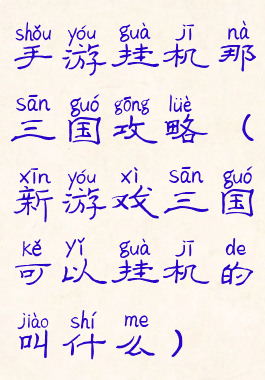 shǒu yóu guà jī nà
手游挂机那
sān guó gōng lüè
三国攻略（
xīn yóu xì sān guó
新游戏三国
kě yǐ guà jī de
可以挂机的
jiào shí me
叫什么）